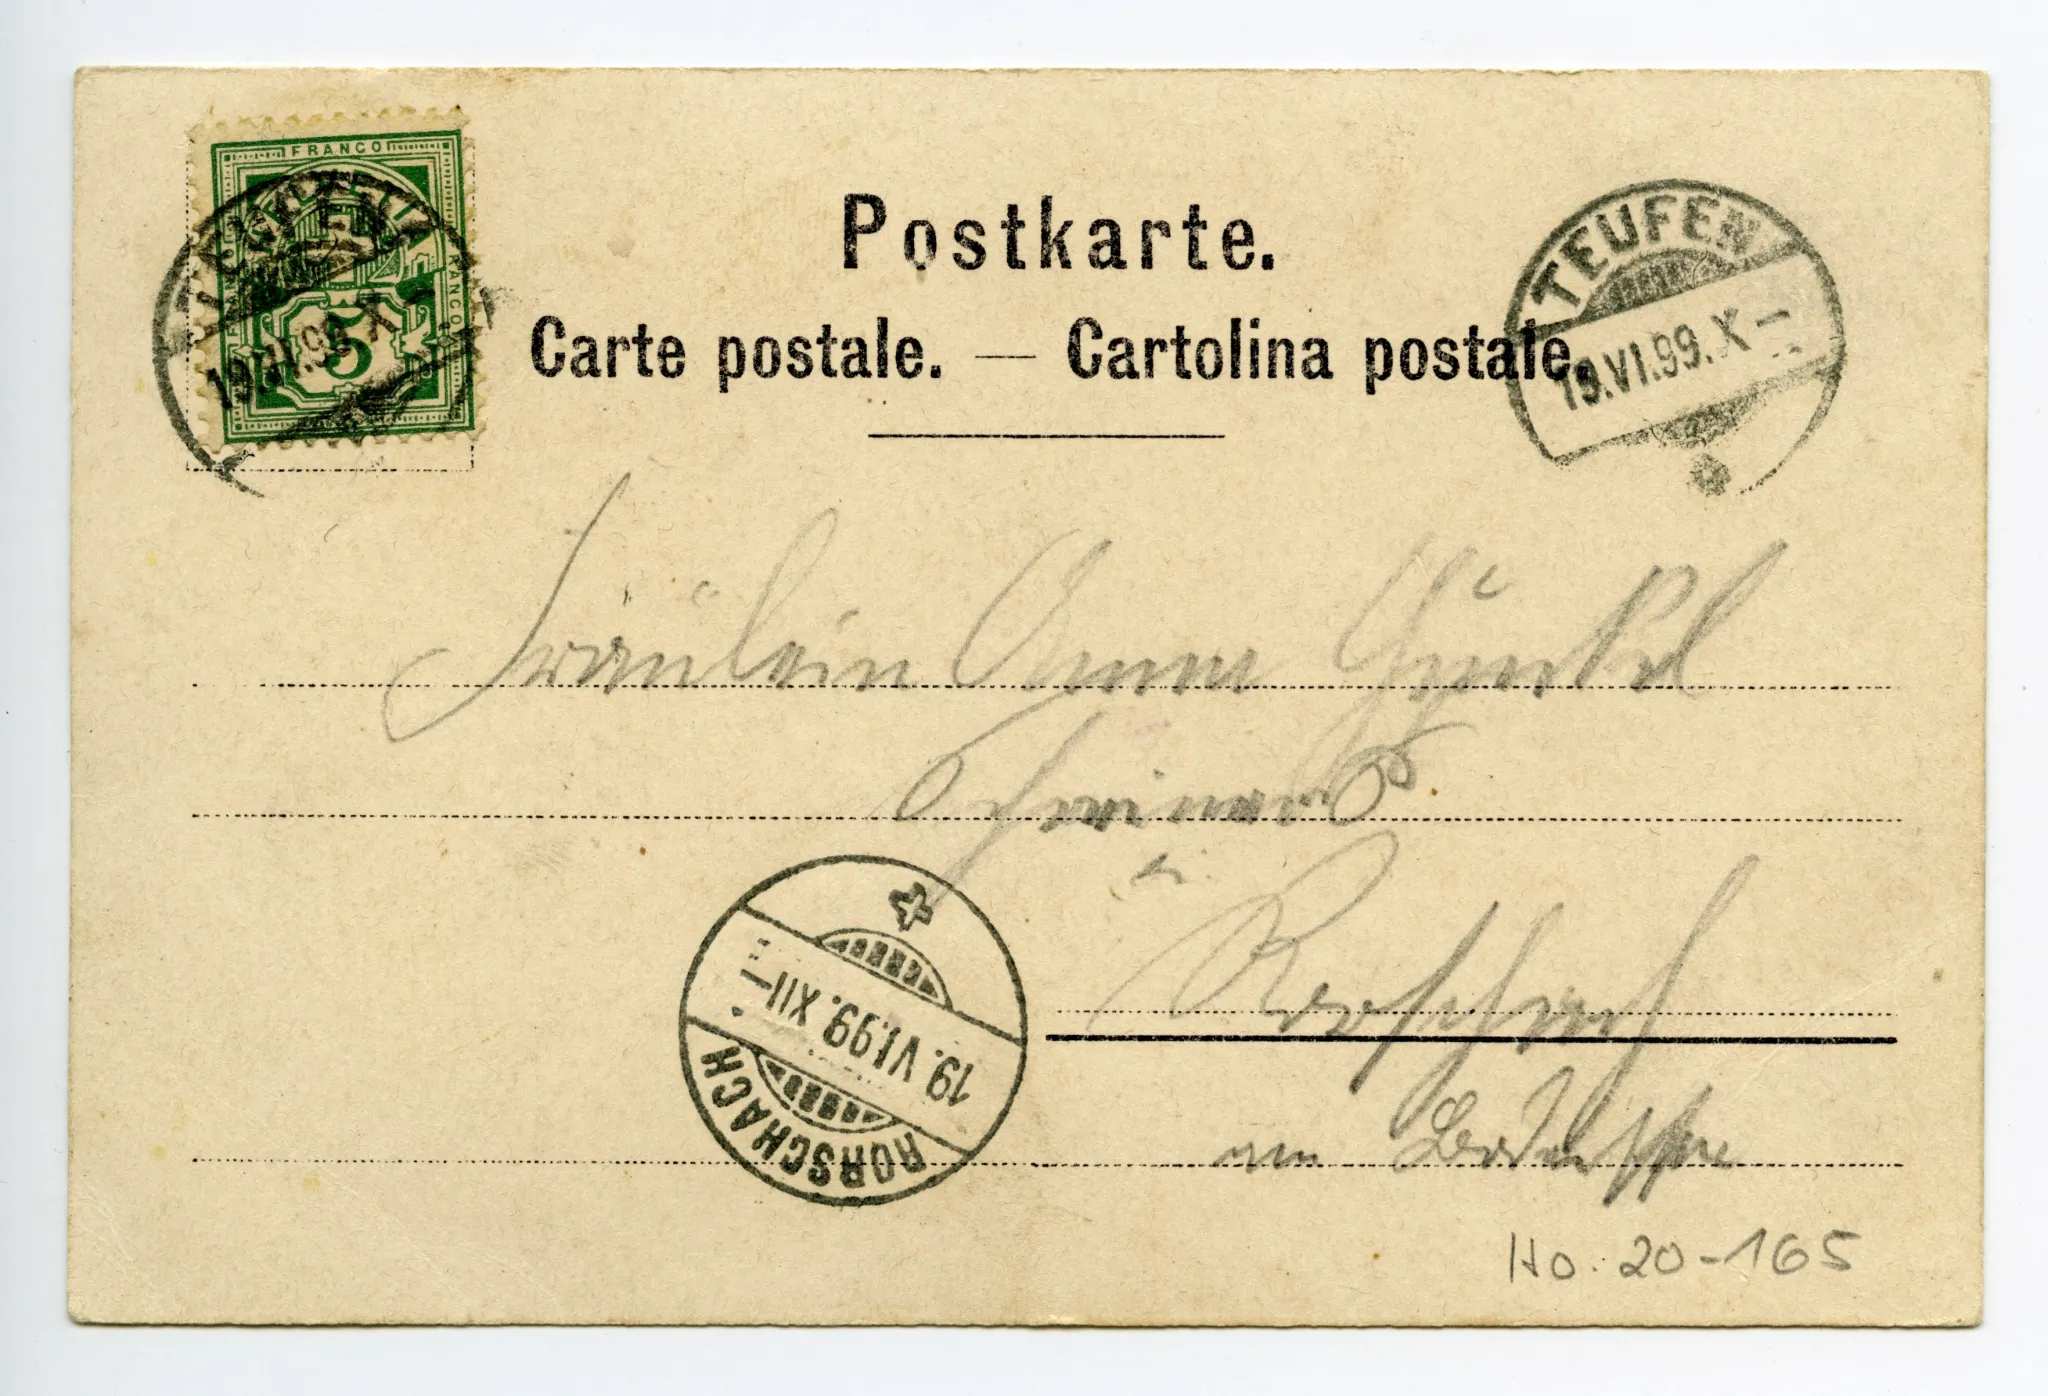 FRANCO
HELVETIA
FRANCO
FRANCO
5
TEUFEN
19.VI.99.X
Postkarte.
Carte postale. — Cartolina postale.
TEUFEN
19.VI.99.X
Fräulein Anna
in
Rorschach
am Bodensee
19.VI.99.XII
RORSCHACH
Ho. 20-165